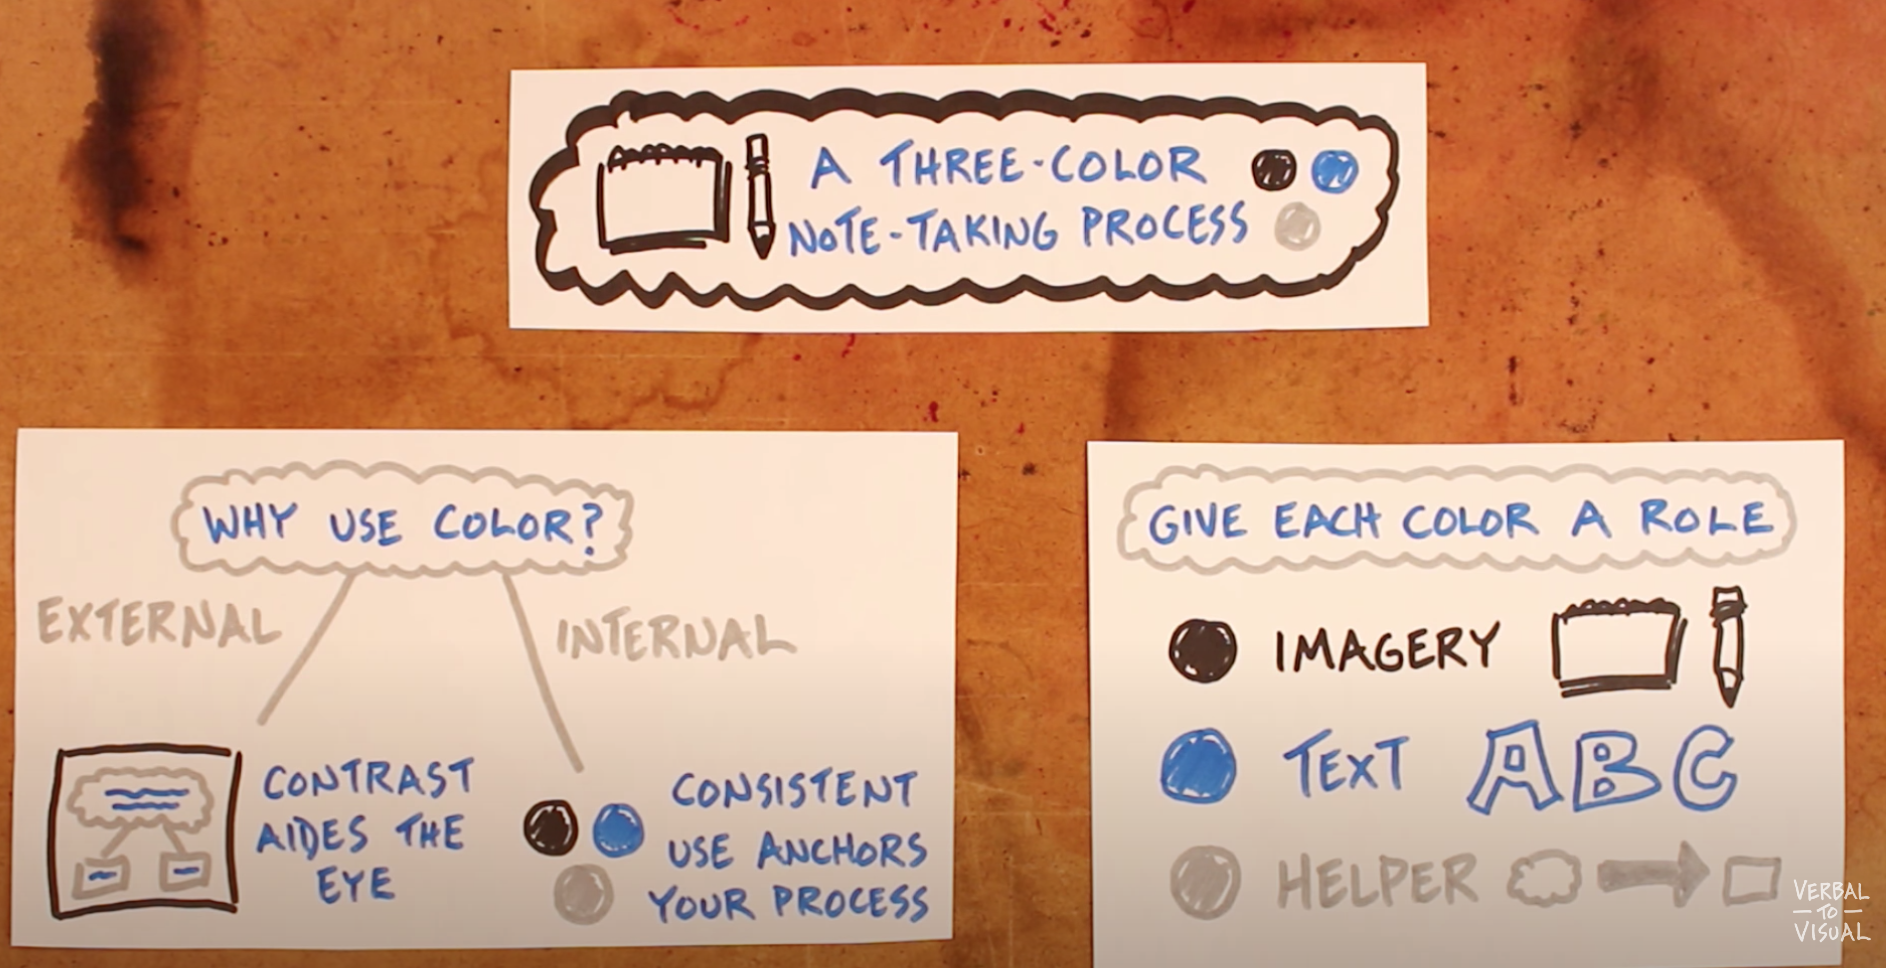 A THREE-COLOR
NOTE-TAKING PROCESS
WHY USE COLOR?
EXTERNAL
INTERNAL
CONTRAST
AIDES THE
EYE
CONSISTENT
USE ANCHORS
YOUR PROCESS
GIVE EACH COLOR A ROLE
IMAGERY
TEXT ABC
HELPER
VERBAL
TO
VISUAL